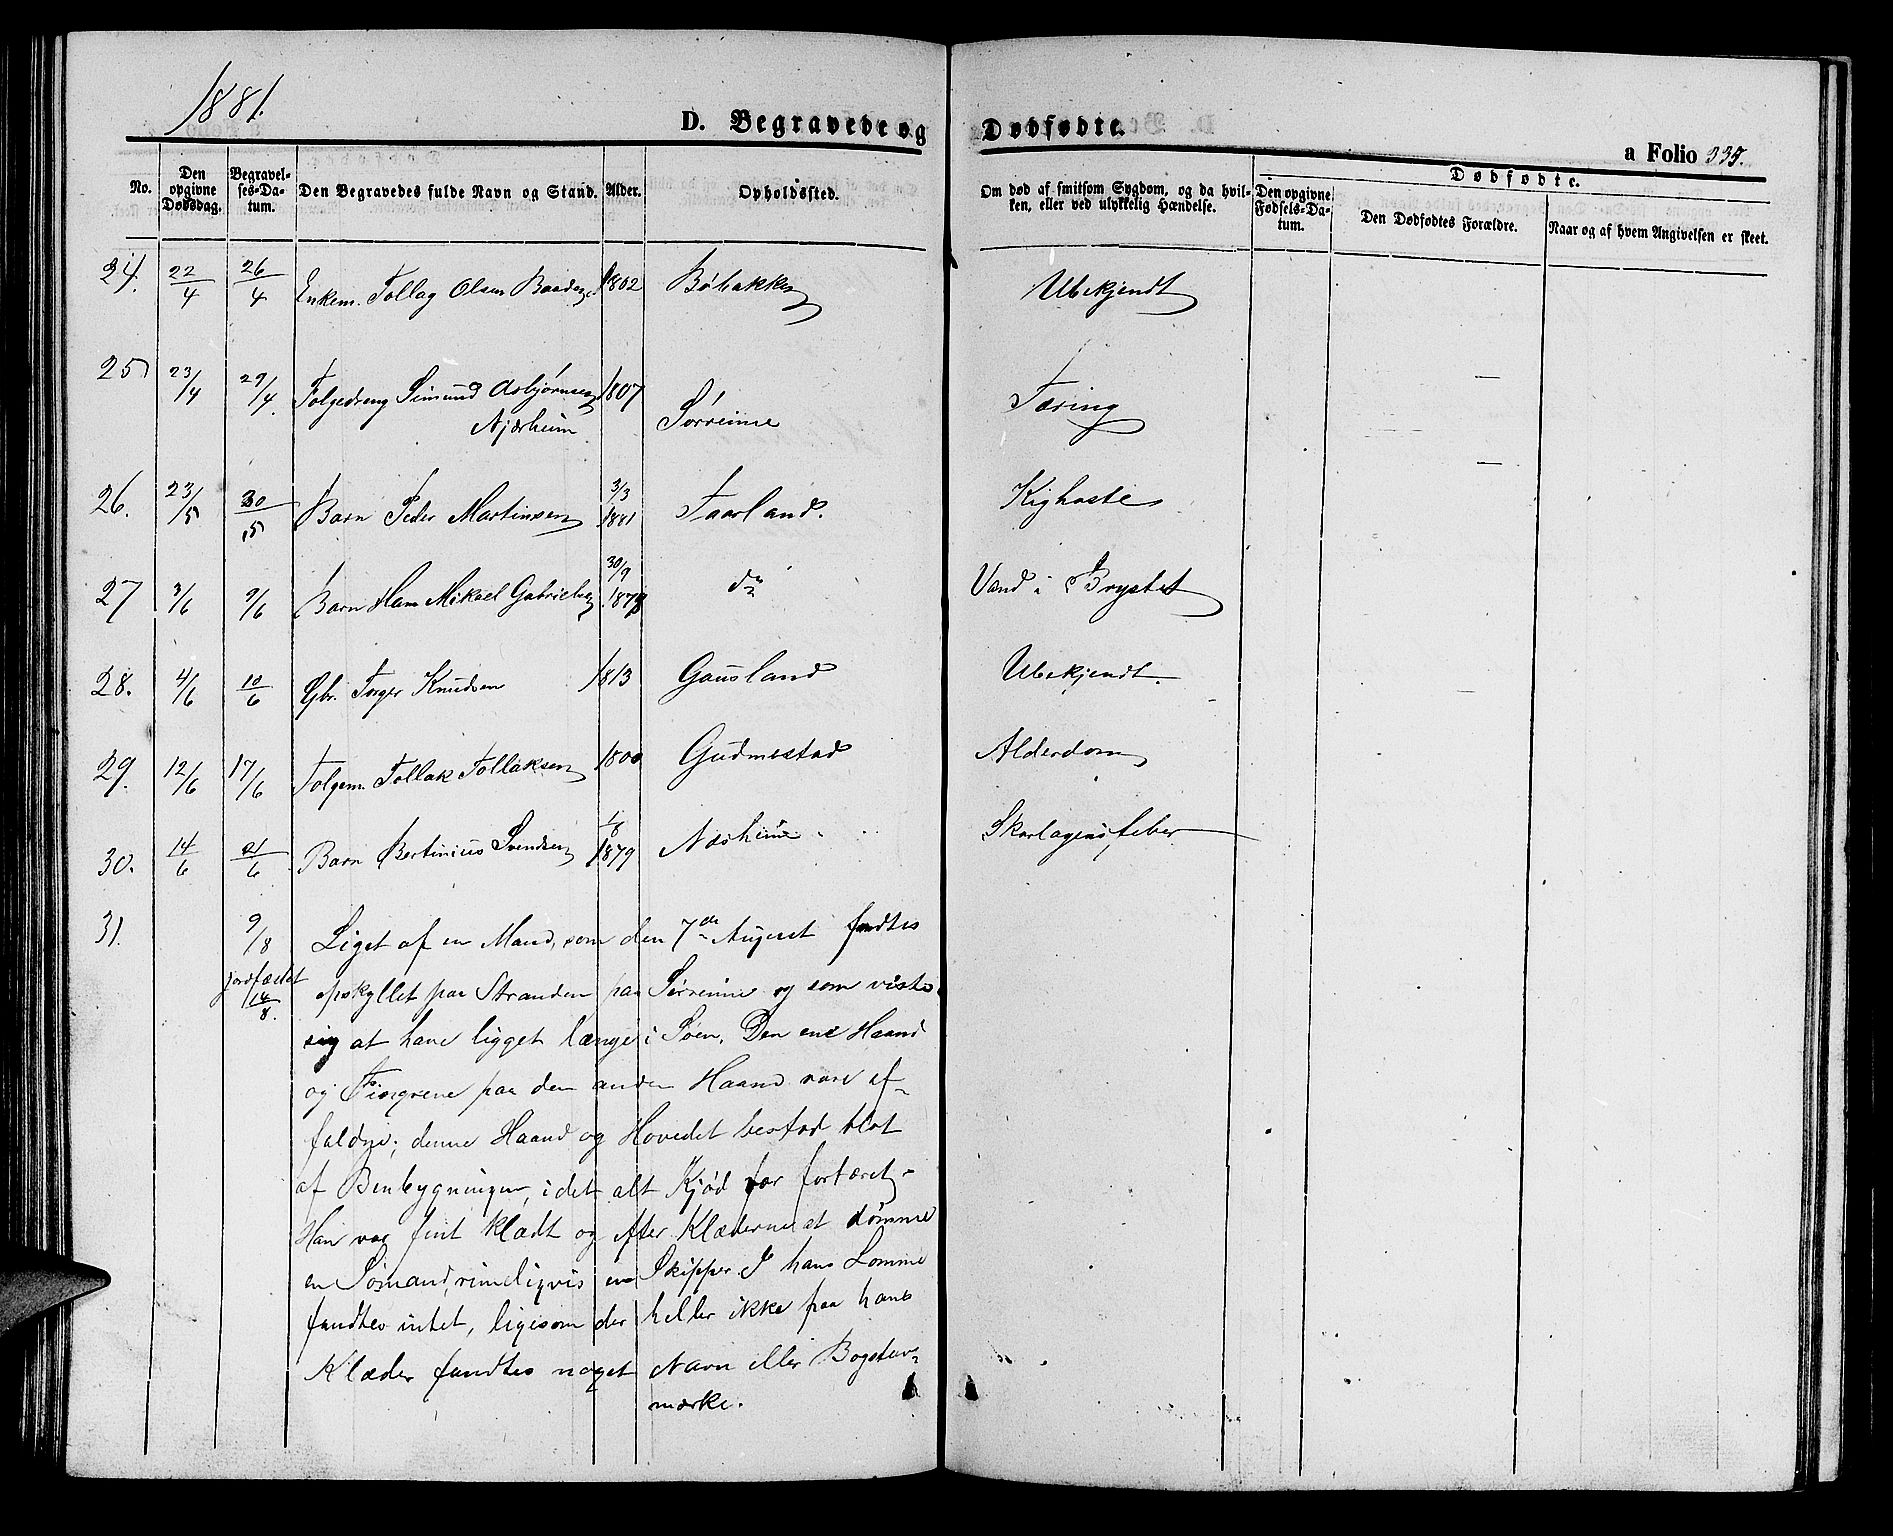 1881.
D. Begravede og Dødfødte.
a Folio 335.
No. Den opgivne Dødsdag. Begravelses-Datum. Den Begravedes fulde Navn og Stand. Alder. Opholdssted. Om død af smitsom Sygdom, og da hvilken, eller ved ulykkelig Hændelse. Den opgivne Fødsels-Datum. Dødfødte. Den Dødfødtes Forældre. Naar og af hvem Angivelsen er skeet.
24. 22/4 26/4 Enkem. Tollag Olsen 1802 Ubekjendt
25 23/4 29/4 Folgedreng Simund Asbjørnsen 1807 Tæring —
Njærheim Sørreime
—
26. 23/5 30/5 Barn Peder Martinsen 3/3 1881 Taarland. Kighoste
27 3/6 9/6 Barn Hans Mikael Gabrielsen 30/9 1878 do Vand i Brystet
28. 4/6 10/6 Gbr. Torger Knudsen 1813 Gausland Ubekjendt.
29. 12/6 17/6 Folgem. Tollak Tollaksen 1800 Gudmestad Alderdom
30. 14/6 21/6 Barn Bertinius Svendsen 1879 Næsheim Skarlagensfeber
31. 9/8 Liget af en Mand, som den 7de August fandtes
jordfæstet 14/8. opskyllet paa Stranden paa Sørreime og som viste
sig at have ligget længe i Søen. Den ene Haand
og Fingrene paa den anden Haand vare af-
faldne; denne Haand og Hovedet bestod blot
af Benbygningen, idet alt Kjød var fortæret.
Han var fint klædt og efter Klæderne at dømme
en Sømand, rimeligvis en Skipper. I hans Lomme
fandtes intet, ligesom der heller ikke paa hans
Klæder fandtes noget Navn eller Bogstav-
mærke.